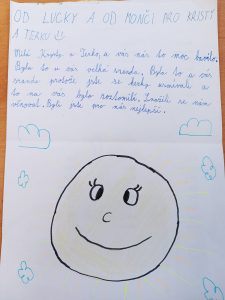 OD LUCKY A OD MONČI PRO KRISTY
A TERKU
Milá Kristy a Terko, u vás nás to moc bavilo.
Byla to u vás velká sranda. Byla to u vás
sranda protože jste se hezky usmívali a
to na vás bylo roztomilé. Snažili se nám
věnovat. Byli jste pro nás nejlepší.